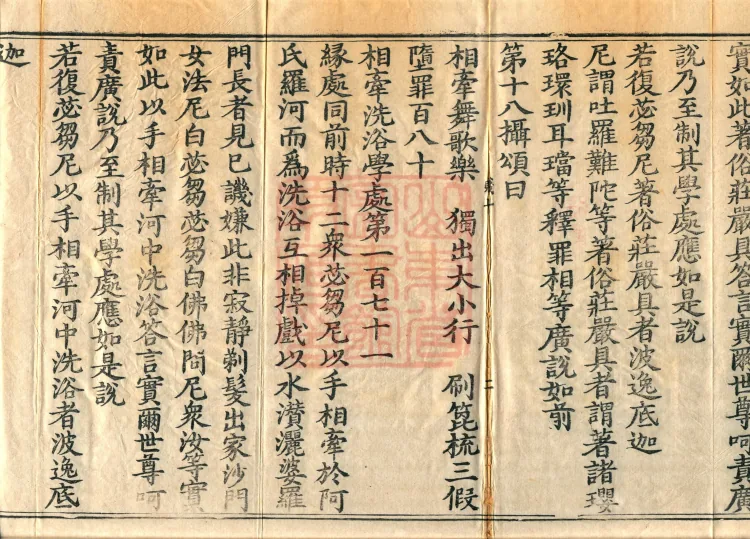 實如此著俗莊嚴具答言實爾世尊呵責廣
說乃至制其學處應如是說
若復苾芻尼著俗莊嚴具者波逸底迦
尼謂吐羅難陀等著俗莊嚴具者謂著諸瓔
珞環玔耳璫等釋罪相等廣說如前
第十八攝頌曰
相牽舞歌樂 獨出大小行 刷篦梳三假
墮罪百八十
相牽洗浴學處第一百七十一
緣處同前時十二衆苾芻尼以手相牽於阿
氏羅河而爲洗浴互相掉戲以水灒灑婆羅
門長者見已譏嫌此非寂靜剃髮出家沙門
女法尼白苾芻苾芻白佛佛問尼衆汝等實
如此以手相牽河中洗浴答言實爾世尊呵
責廣說乃至制其學處應如是說
若復苾芻尼以手相牽河中洗浴者波逸底
迦